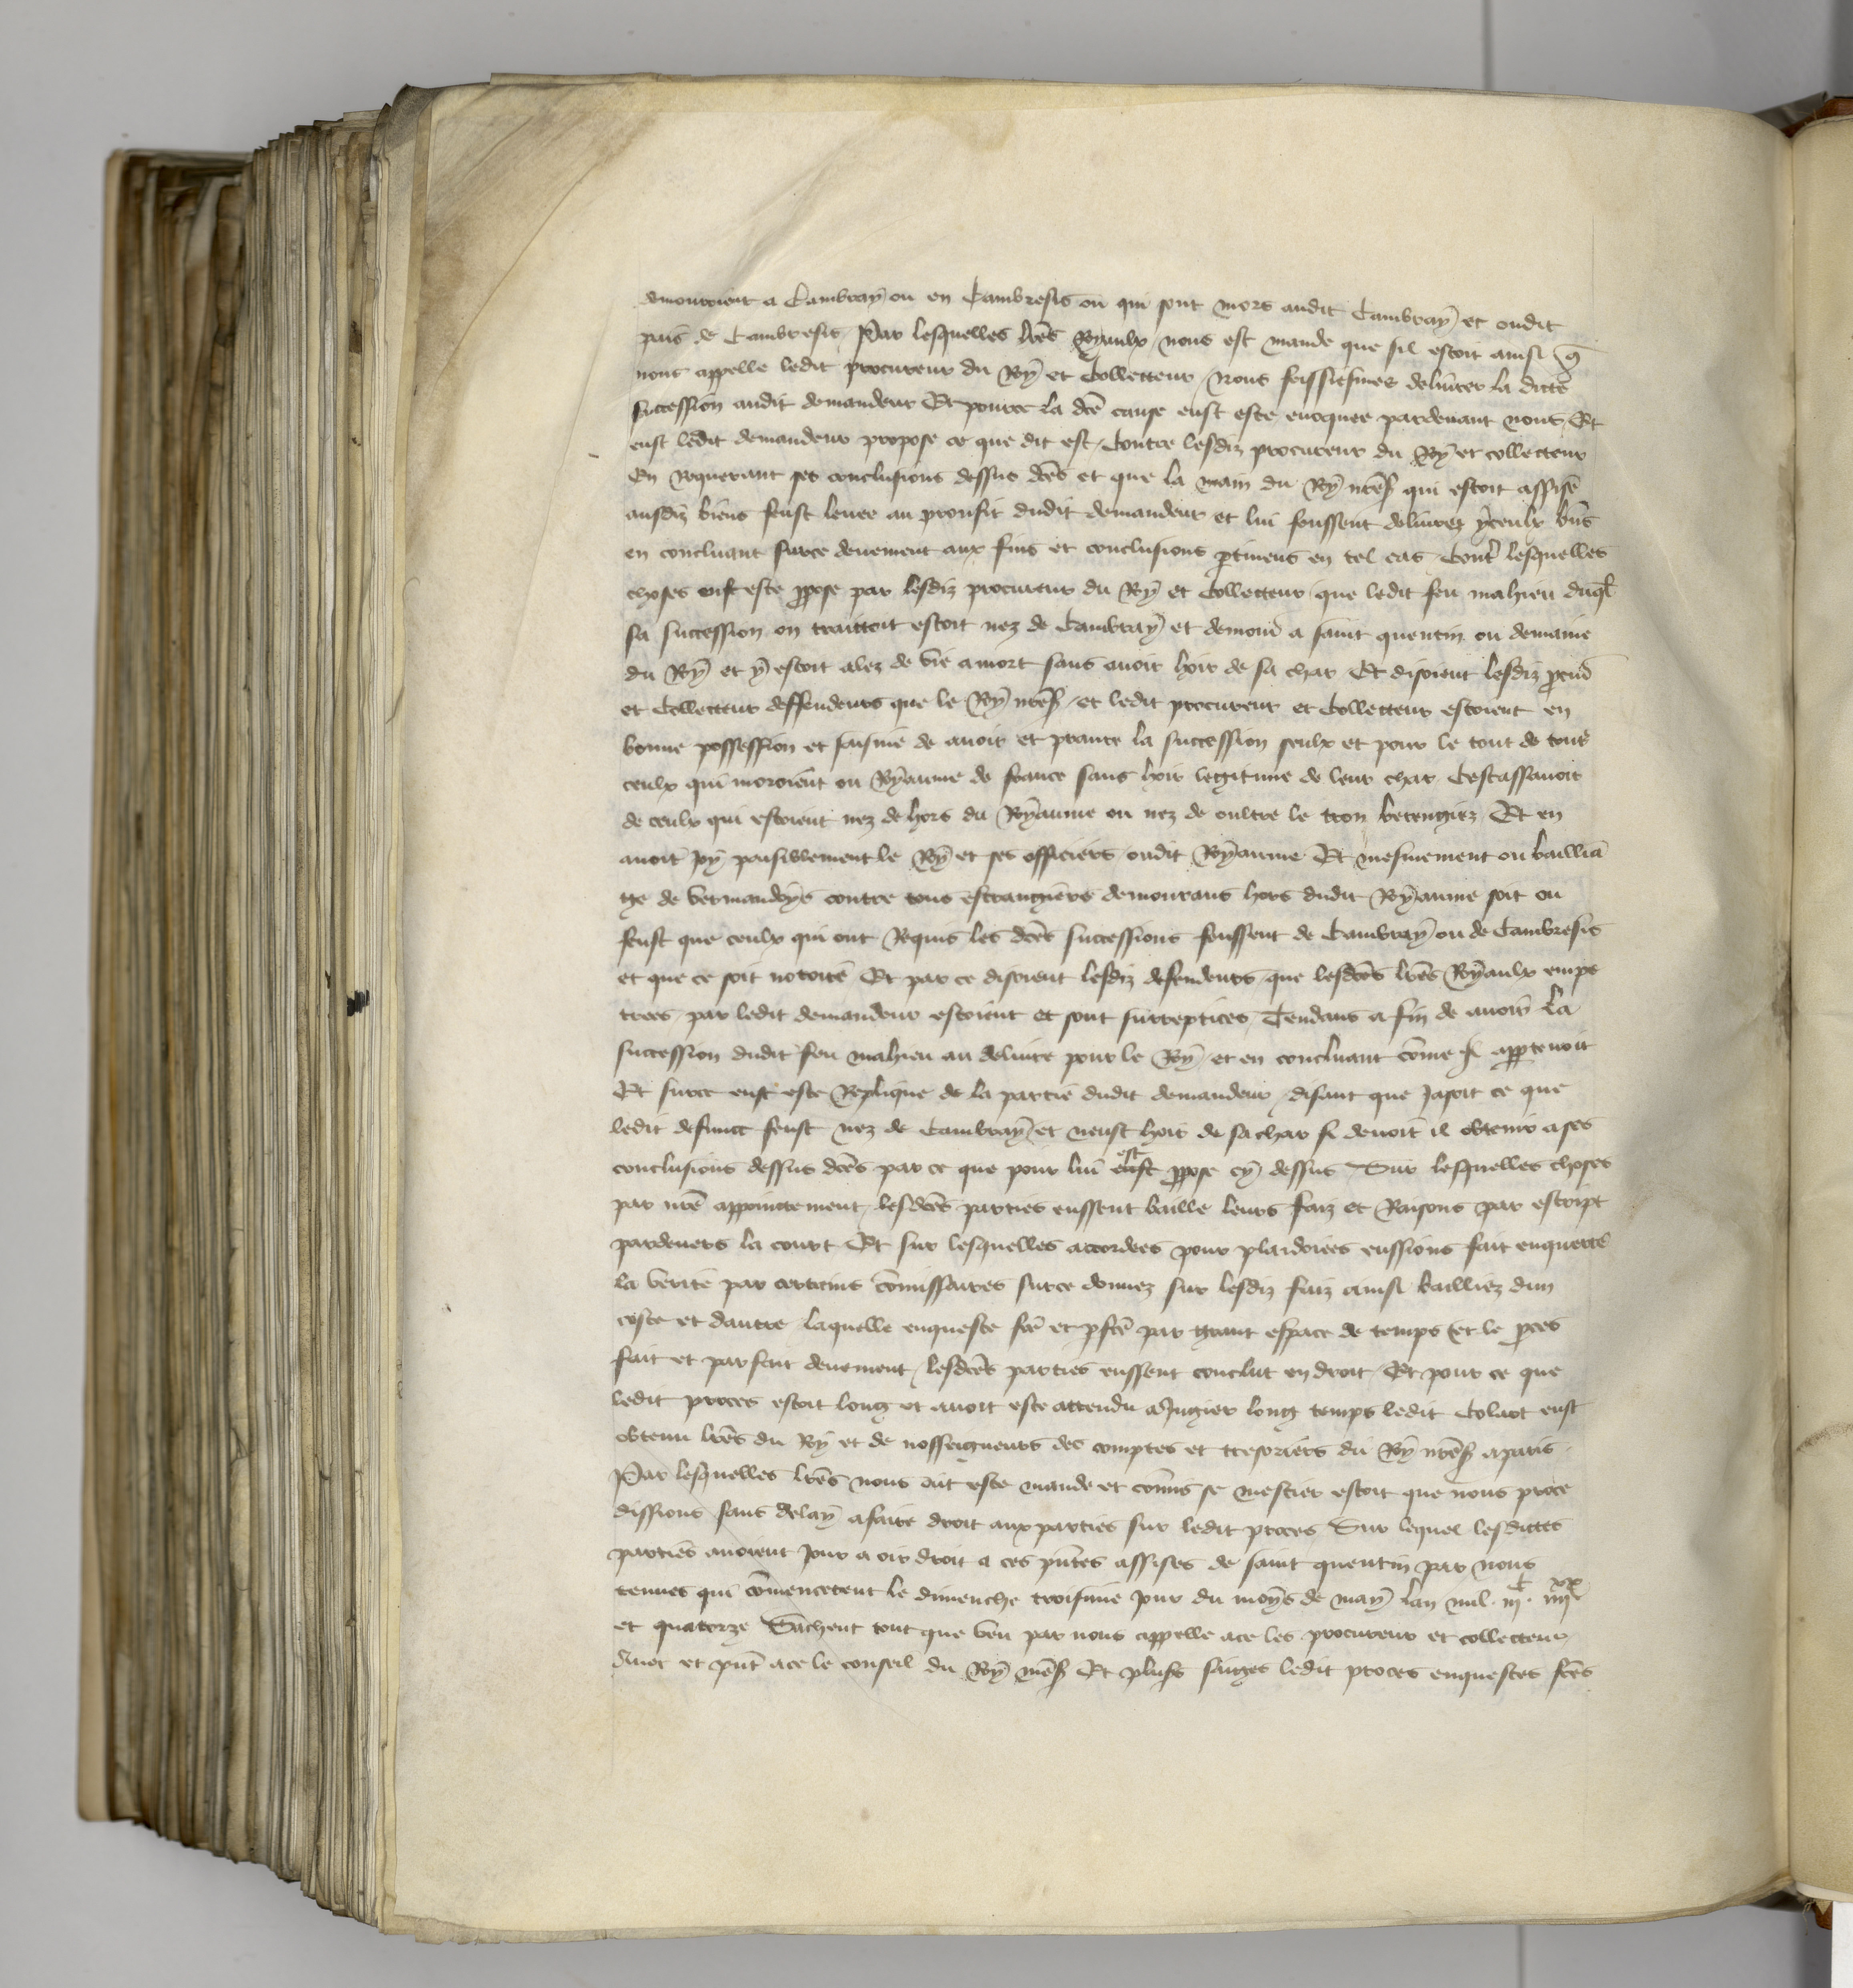 demourroient a Cambray ou en Cambresis ou qui sont mors audit Cambray et oudit
pais de Cambresis Par lesquelles lrẽs Royaulx nous est mande que sil estoit ainsi q̃
nous appelle ledit procureur du Roy et Collecteur nous feissiesmes delivrer la dicte
succession audit demandeur Et pource la dcẽ cause eust este evoquee pardevant nous Et
eust ledit demandeur propose ce que dit est Contre lesdiz procureur du Roy et collecteur
En requerant ses conclusions dessus dcẽs et que la main du Roy nr̃eẽs qui estoit assise
ausdiz biens feust levee au proufit dudit demandeur et lui feussent delivrez yceulx bñs
en concluant surce deuement aux fins et conclusions p̱tinens en tel cas Cont̃ lesquelles
choses eust este p̱pose par lesdiz procureur du Roy et Collecteur que ledit feu mahieu duq̃l
sa succession on traittoit estoit nez de Cambray et demour̃ a saint quentin ou demaine
du Roy et y estoit alez de vie a mort sans avoir hoir de sa char Et disoient lesdiz p̱cur̃
et Collecteur deffendeurs que le Roy nr̃eẽs et ledit procureur et Collecteur estoient en
bonne possession et saisine de avoir et prante la succession seulx et pour le tout de tous
ceulx qui moroient ou Royaume de france sans hoir legitime de leur char Cestassavoir
de ceulx qui estoient nez de hors du Royaume ou nez de oultre le tron berengiez Et en
avoit joy paisiblement le Roy et ses officiers oudit Royaume Et mesmement ou baillia
ge de vermandoys contre tous estrangiers demourans hors dudit Royaume soit ou
feust que ceulx qui ont requis les dcẽs successions feussent de Cambray ou de Cambresis
et que ce soit notoire Et par ce disoient lesdiz defendeurs que lesdcẽs lrẽs Royaulx empe
trees par ledit demandeur estoient et sont surreptices Tendans a fin de avoir la
succession dudit feu mahieu au delivre pour le Roy et en concluant cõme il app̱tenoit
Et surce eust este Replique de la partie dudit demandeur disant que jasoit ce que
ledit defunct feust nez de Cambray et neust hoir de sa char si devoit il obtenir a ses
conclusions dessus dcẽs par ce que pour lui est p̱pose cy dessus Sur lesquelles choses
par nrẽ appointement lesdcẽs parties eussent baille leurs faiz et Raisons par escript
pardevers la court Et sur lesquelles accordees pour plaidoiees eussions fait enquerre
la verite par certains cõmissaires surce donnez sur lesdiz faiz ainsi bailliez dun
coste et dautre laquelle enqueste fcẽ et p̱fcẽ par grant espace de temps et le p̱ces
fait et parfait deuement lesdcẽs parties eussent conclut en droit Et pour ce que
ledit proces estoit long et avoit este attendu a jugier long temps ledit Colart eust
obtenu lrẽs du Roy et de nosseigneurs des comptes et tresoriers du Roy nr̃eẽs a paris
Par lesquelles lrẽs nous ait este mande et cõmis se mestier estoit que nous proce
dissions sans delay a faire droit aux parties sur ledit proces Sur lequel lesdictes
parties avoient jour a oir droit a ces p̃ntes assises de saint quentin par nous
tenues qui cõmencerent le dimenche troisime jour du moys de may lan mil iijC iiijxx
et quatorze Sachent tout que veu par nous appelle ace les procureur et collecteur
et p̃nt ace le conseil du Roy nr̃eẽs Et plus̃s saiges ledit proces enquestes fcẽs